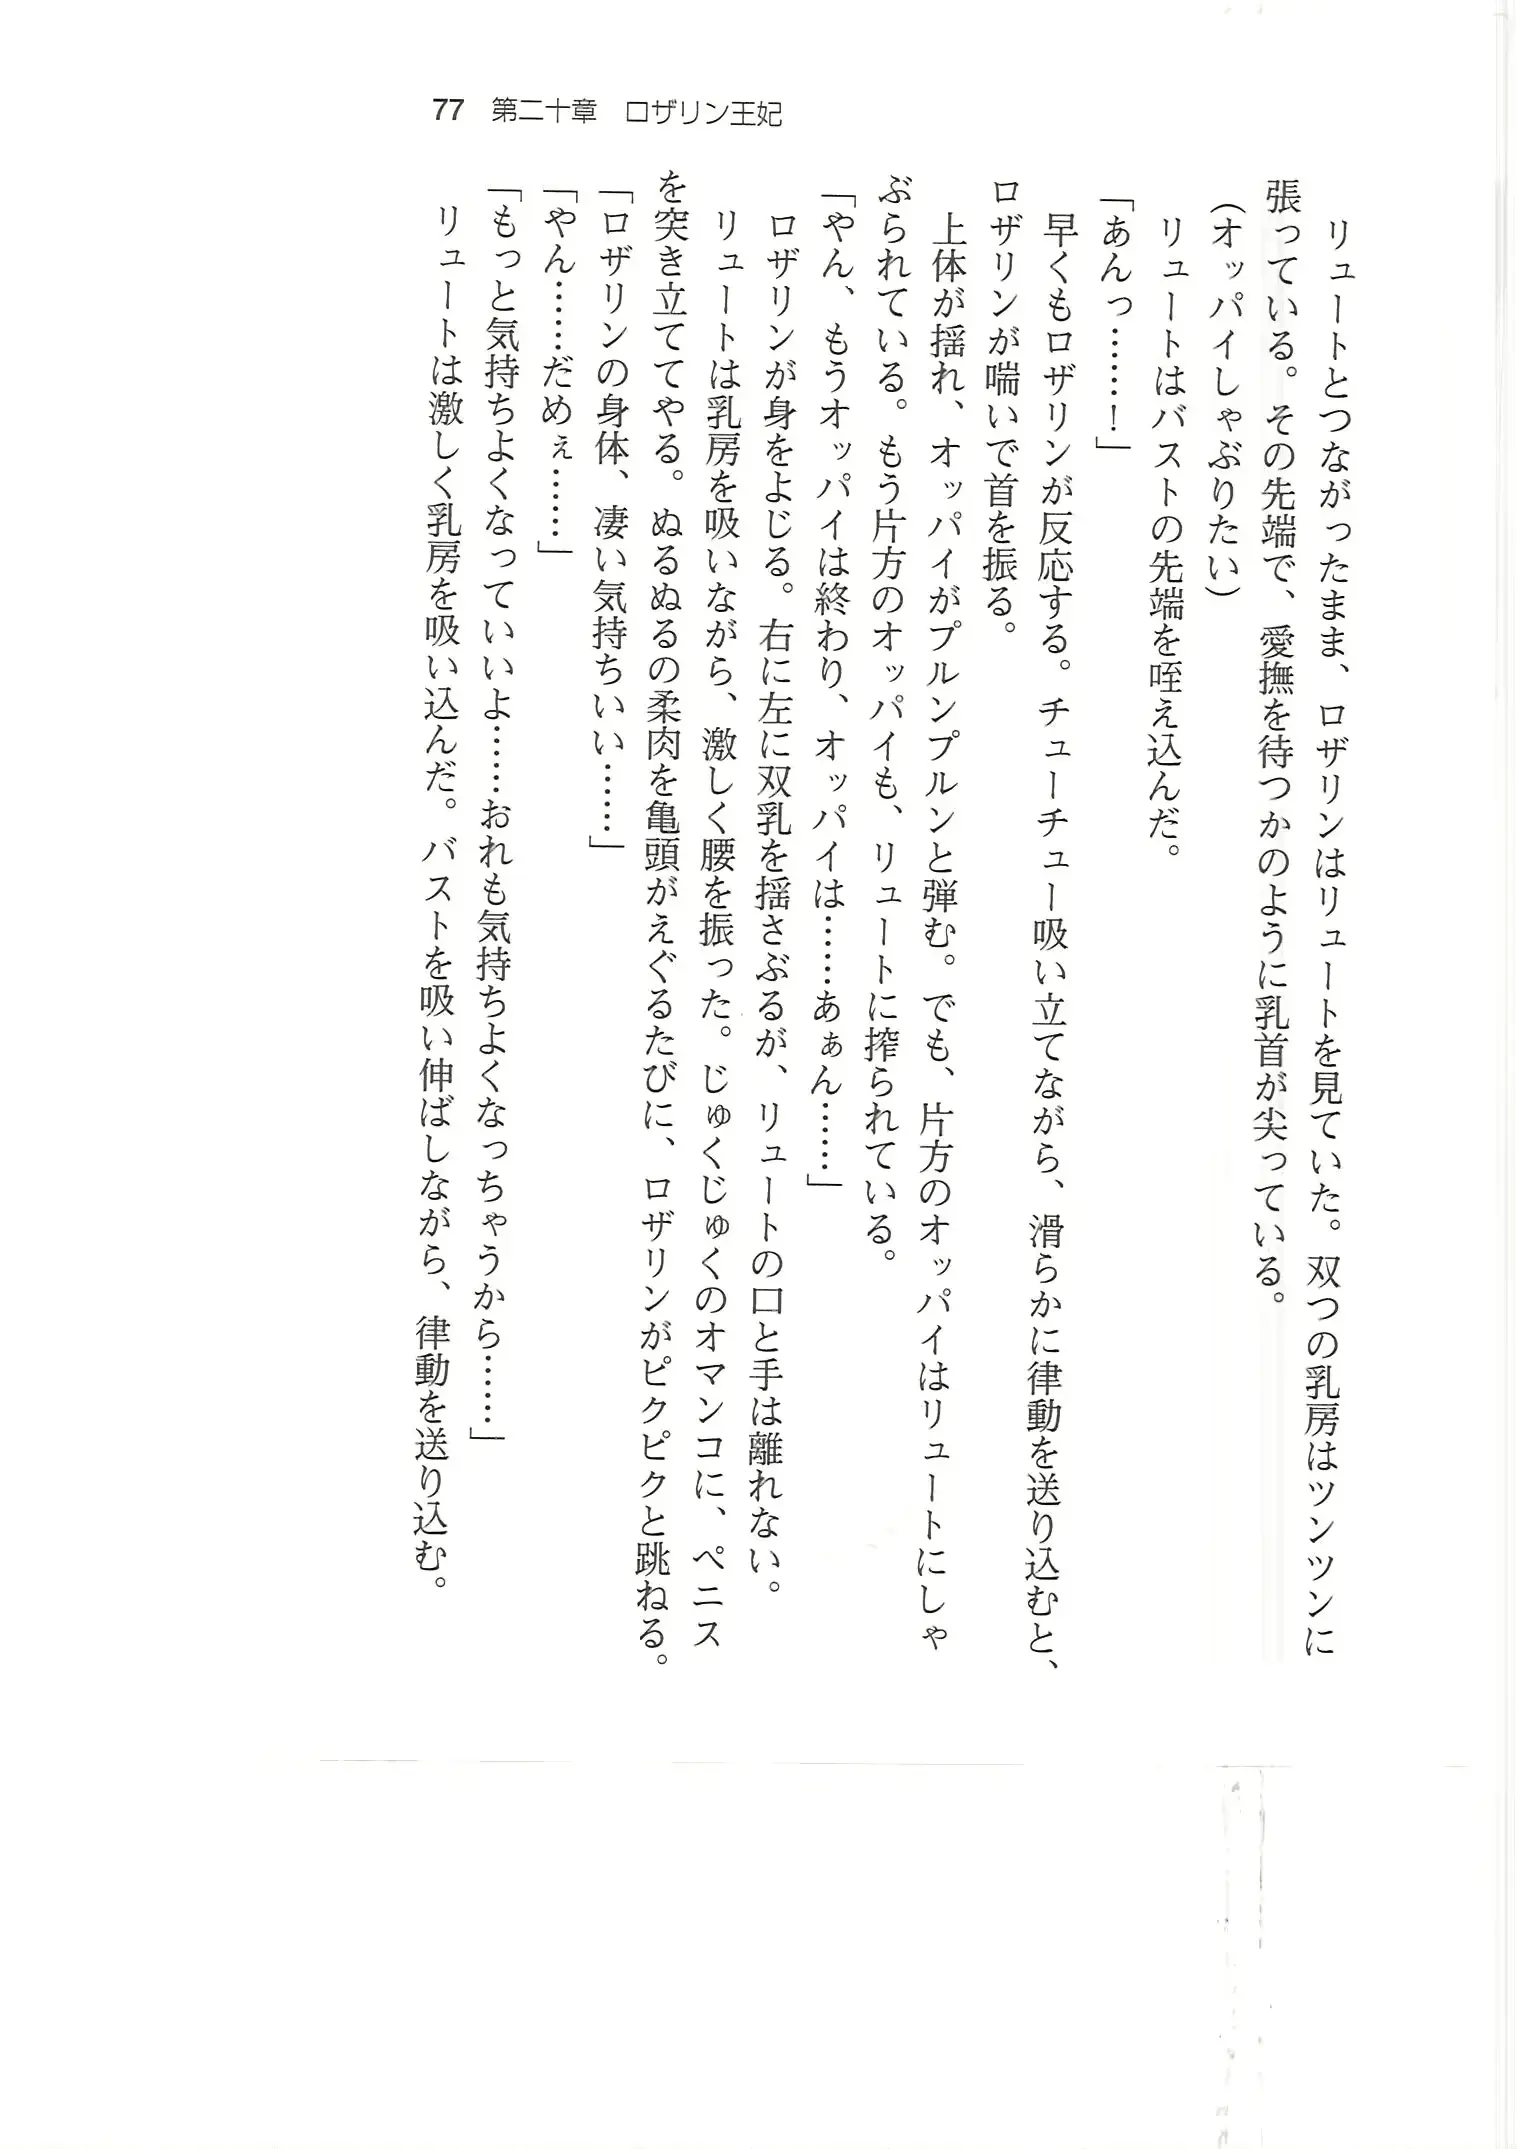 77 第二十章 ロザリン王妃
リュートとつながったまま、ロザリンはリュートを見ていた。双つの乳房はツンツンに
張っている。その先端で、愛撫を待つかのように乳首が尖っている。
(オッパイしゃぶりたい)
リュートはバストの先端を咥え込んだ。
「あんっ……！」
早くもロザリンが反応する。チューチュー吸い立てながら、滑らかに律動を送り込むと、
ロザリンが喘いで首を振る。
上体が揺れ、オッパイがプルンプルンと弾む。でも、片方のオッパイはリュートにしゃ
ぶられている。もう片方のオッパイも、リュートに搾られている。
「やん、もうオッパイは終わり、オッパイは……あぁん……」
ロザリンが身をよじる。右に左に双乳を揺さぶるが、リュートの口と手は離れない。
リュートは乳房を吸いながら、激しく腰を振った。じゅくじゅくのオマンコに、ペニス
を突き立ててやる。ぬるぬるの柔肉を亀頭がえぐるたびに、ロザリンがピクピクと跳ねる。
「ロザリンの身体、凄い気持ちいい……」
「やん……だめぇ……」
「もっと気持ちよくなっていいよ……おれも気持ちよくなっちゃうから……」
リュートは激しく乳房を吸い込んだ。バストを吸い伸ばしながら、律動を送り込む。